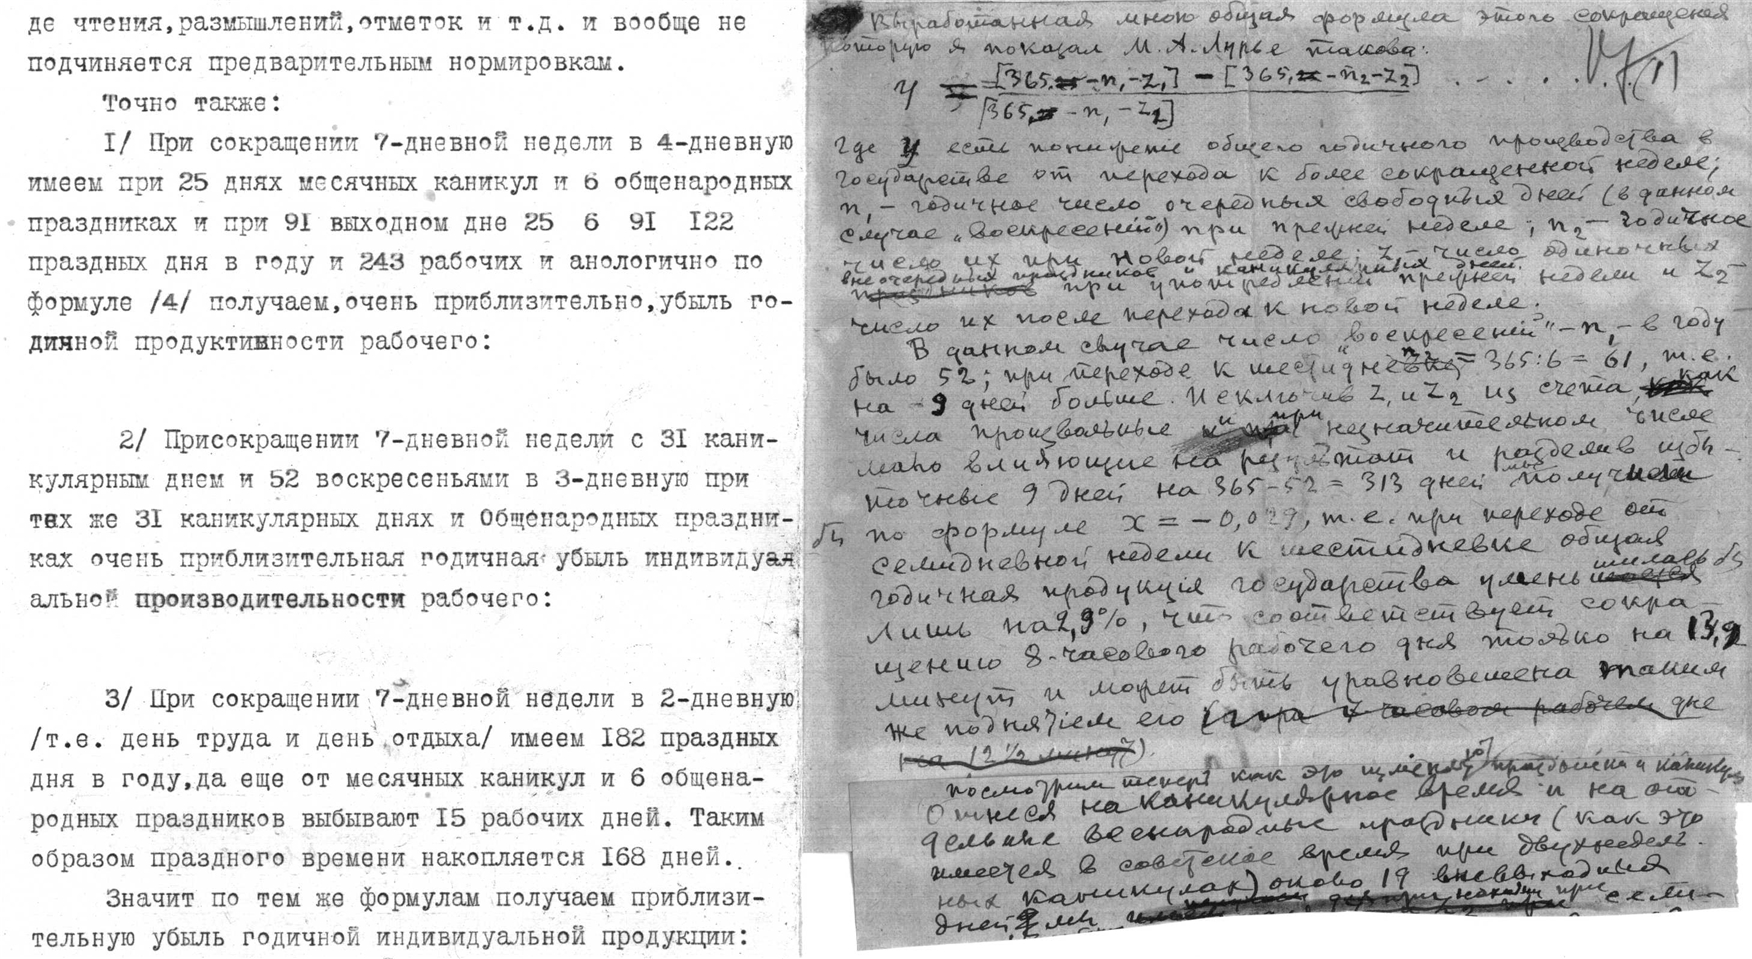 де чтения,размышлений,отметок и т.д. и вообще не
подчиняется предварительным нормировкам.
Точно также:
I/ При сокращении 7-дневной недели в 4-дневную
имеем при 25 днях месячных каникул и 6 общенародных
праздниках и при 91 выходном дне 25 6 91 I22
праздных дня в году и 243 рабочих и анологично по
формуле /4/ получаем,очень приблизительно,убыль го-
дичной продуктивности рабочего:
2/ Присокращении 7-дневной недели с 3I кани-
кулярным днем и 52 воскресеньями в 3-дневную при
тех же 3I каникулярных днях и Общенародных праздни-
ках очень приблизительная годичная убыль индивидуая
альной производительности рабочего:
3/ При сокращении 7-дневной недели в 2-дневную
/т.е. день труда и день отдыха/ имеем I82 праздных
дня в году,да еще от месячных каникул и 6 общена-
родных праздников выбывают I5 рабочих дней. Таким
образом праздного времени накопляется I68 дней.
Значит по тем же формулам получаем приблизи-
тельную убыль годичной индивидуальной продукции:
Выработанная мною общая формула этого сокращения
которую я показал М.А.Лурье такова:
y = [365 - n₁ - Z₁] - [365 - n₂ - Z₂]
[365 - n₁ - Z₁]
где y есть понижение общего годичного производства в
государстве от перехода к более сокращенной неделе;
n₁ - годичное число очередных свободных дней (в данном
случае „воскресений") при прежней неделе; n₂ - годичное
число их при новой неделе; Z₁ - число одиночных
внеочередных праздников и каникулярных дней
праздников при употреблении прежней недели и Z₂ -
число их после перехода к новой неделе.
В данном случае число „воскресений" - n₁ - в году
было 52; при переходе к шестидневке n₂ = 365:6 = 61, т.е.
на 9 дней больше. Исключив Z₁ и Z₂ из счета, как
числа произвольные и при незначительном числе
мало влияющие на результат и разделив избы-
точные 9 дней на 365-52 = 313 дней получим
по формуле x = -0,029, т.е. при переходе от
семидневной недели к шестидневке общая
годичная продукция государства уменьшилась бы
лишь на 2,9%, что соответствует сокра-
щению 8-часового рабочего дня только на 13,9
минут и может быть уравновешена таким
же поднятием его (при 7 часовом рабочем дне
на 12½ минут)
посмотрим теперь как это изменяют праздники и каникулы
Отнеся на каникулярное время и на от-
дельные всенародные праздники (как это
имеется в советское время при двухнедель-
ных каникулах) около 19 вневыходных
дней мы при семи-